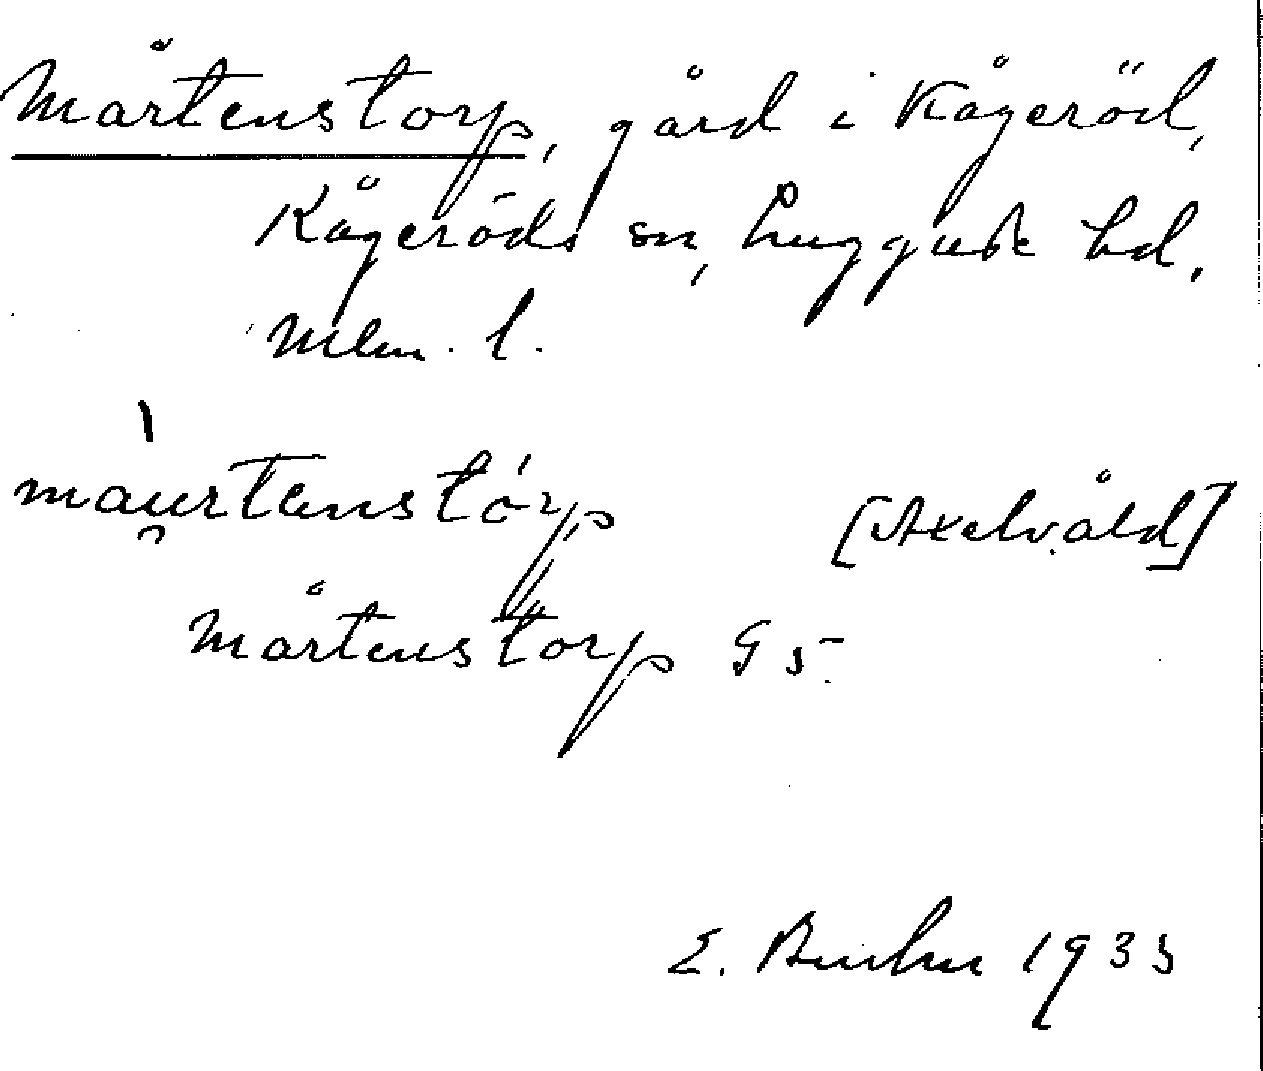 Mårtenstorp, gård i Kågeröd,
Kågeröds sn, Luggude hd,
Mlm. l.
mau̯rtənstórp [Axelvåld]
Mårtenstorp G 5.
E. 1935